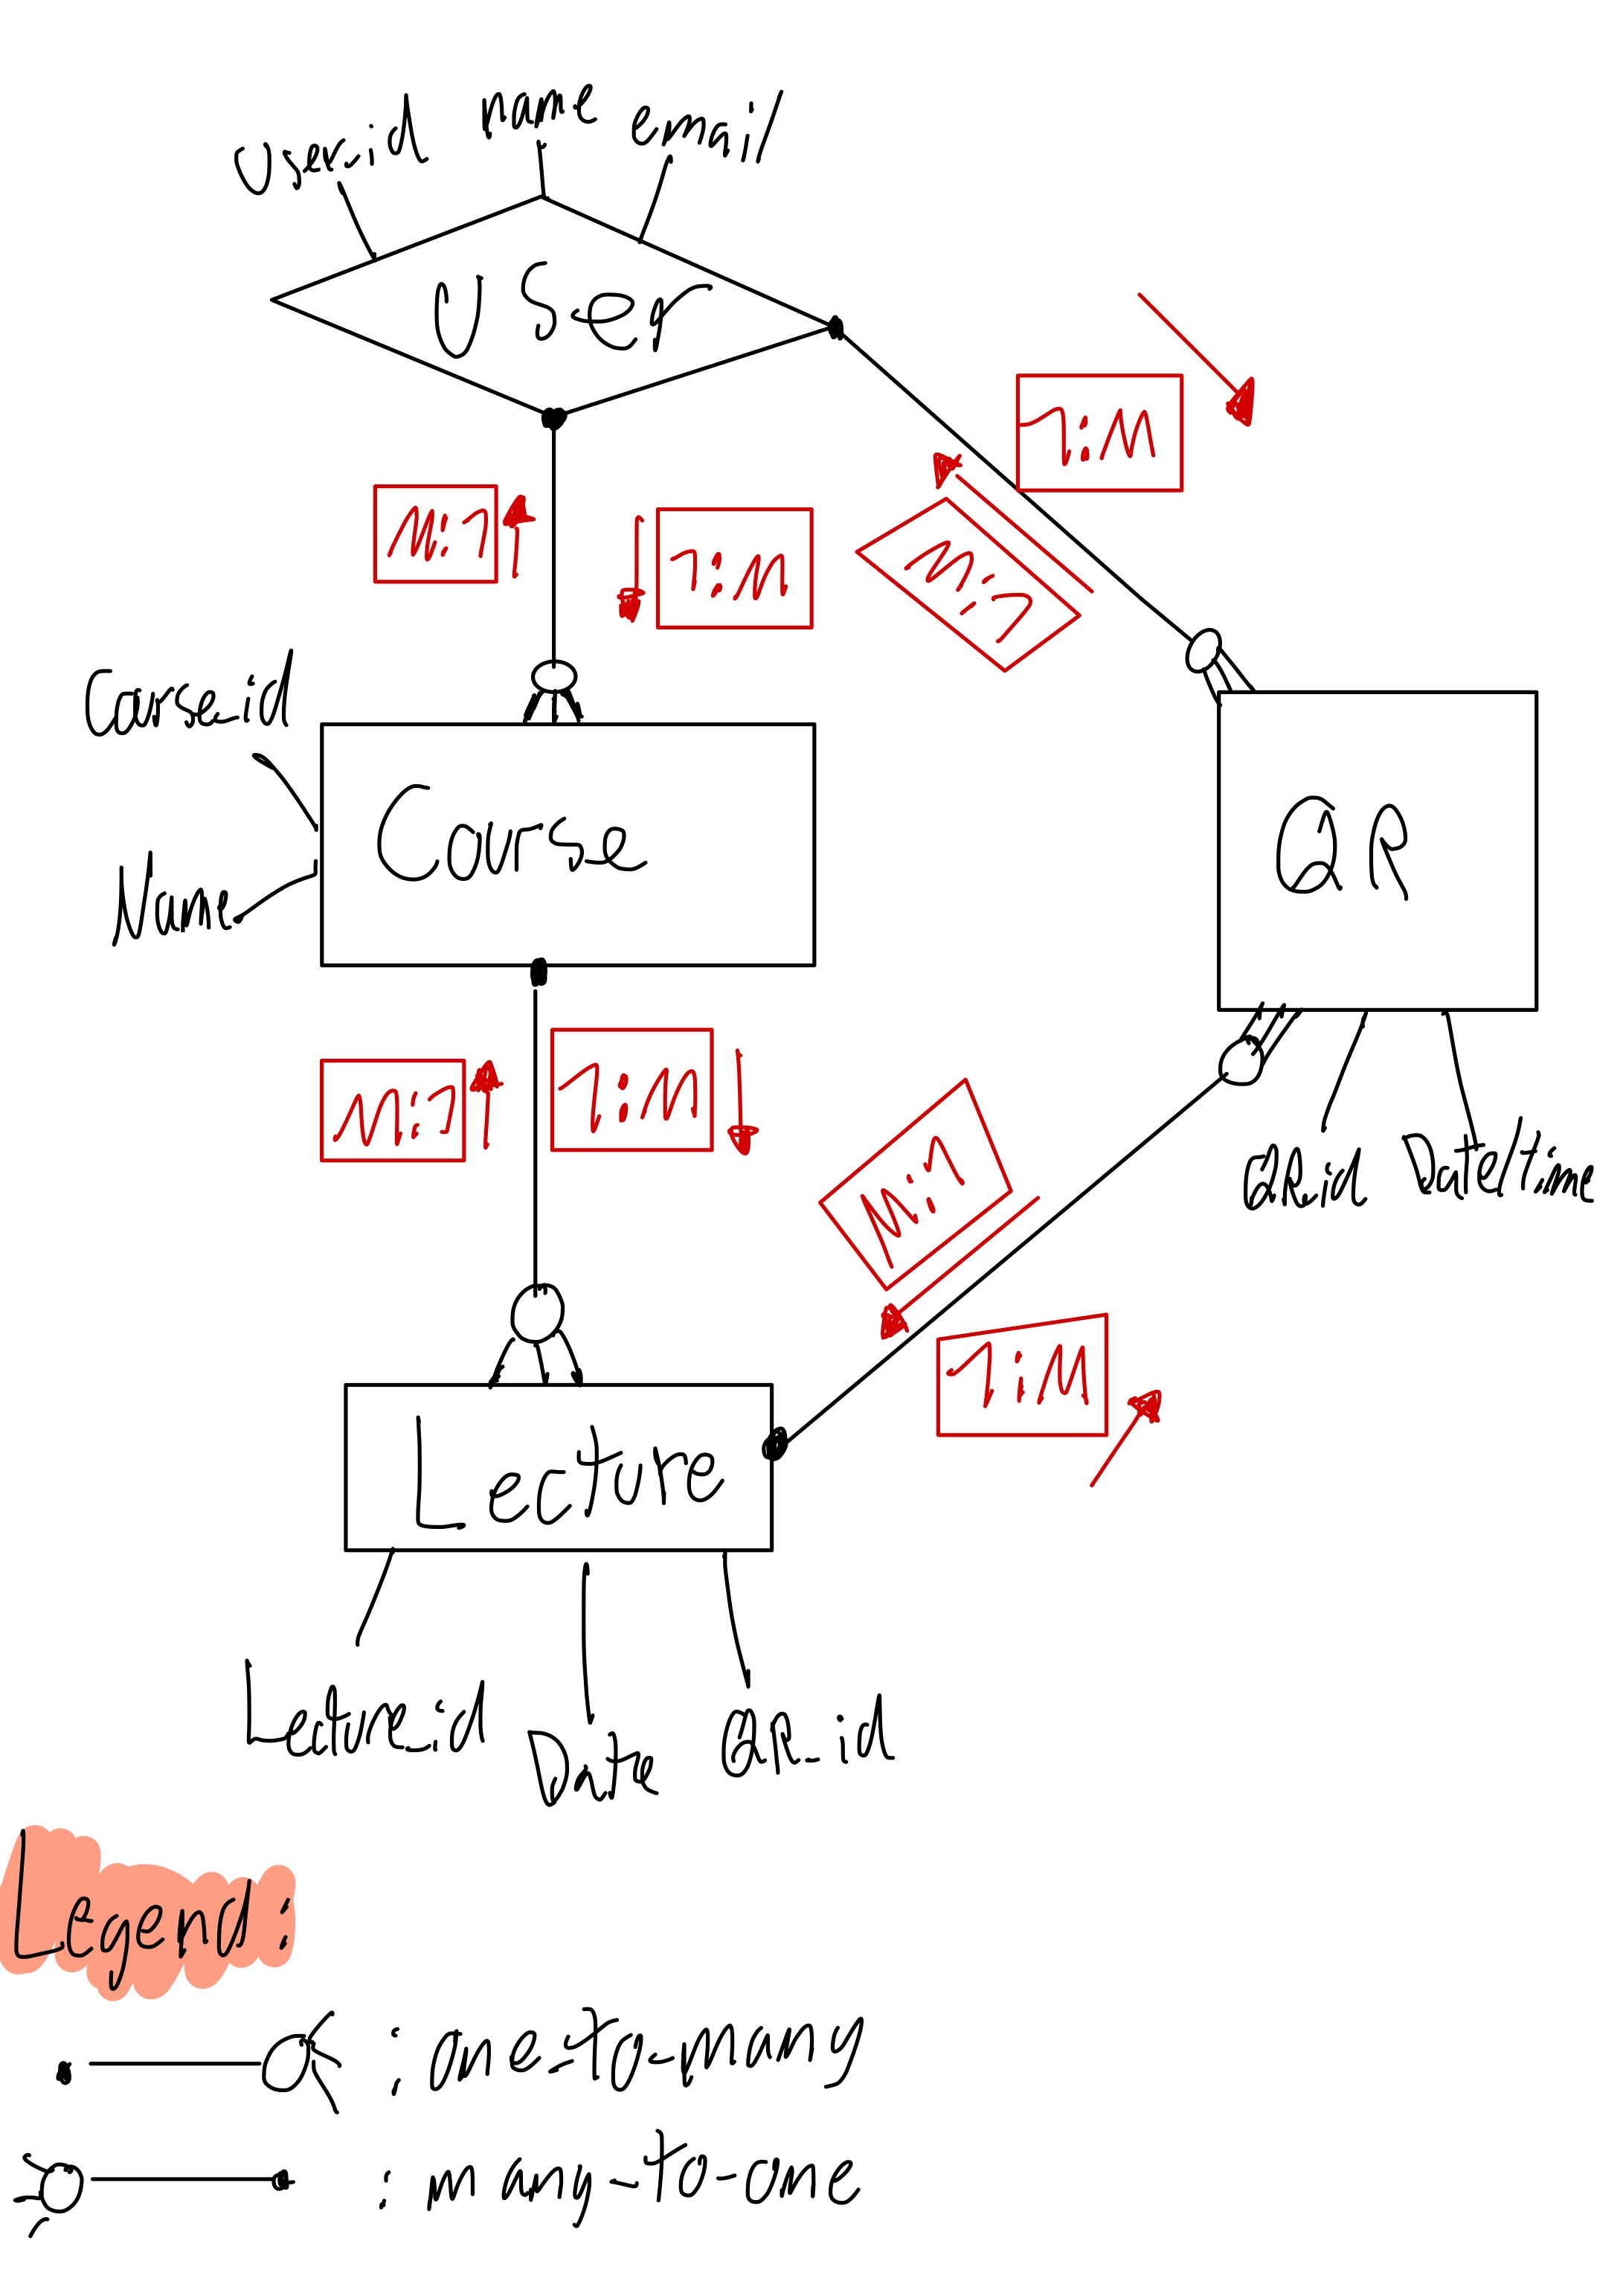 User_id name email
User
1:M
M:1
1:M
M:1
Course_id
Course
QR
Name
M:1
1:M
M:1
QR_id Date/Time
1:M
Lecture
Lecture_id Date QR_id
Legend:
: one-to-many
: many-to-one